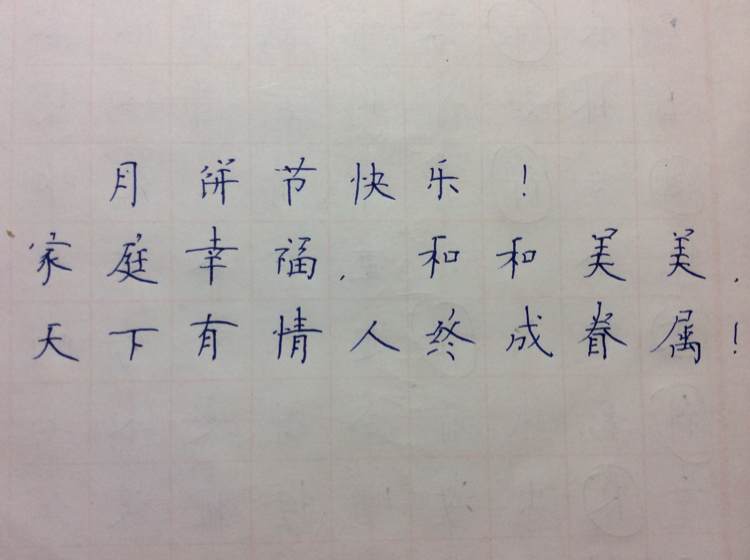 月饼节快乐！
家庭幸福，和和美美，
天下有情人终成眷属！